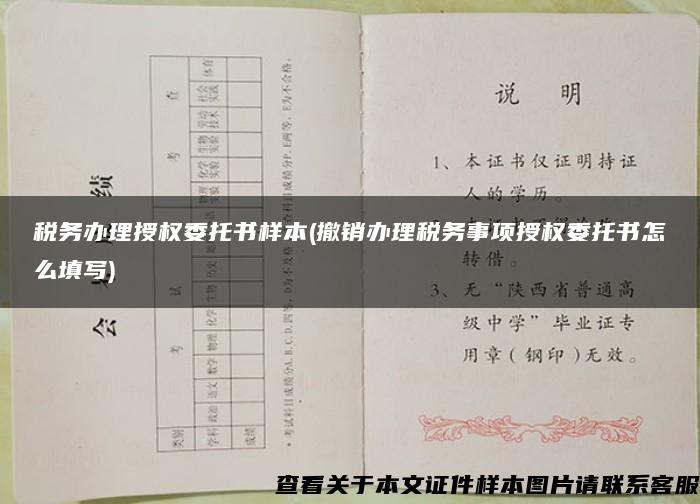 会 绩
类别 考 试 考 查
学科 政治 语文 数学 物理 化学 生物 历史 物理实验 化学实验 生物实验 劳动技术 社会实践 体育
成绩
*考试科目成绩分A.B.C.D.四等，D为不及格 查科目成绩分P.E两等，E为不合格。
说 明
1、本证书仅证明持证
人的学历。
转借。
3、无“陕西省普通高
级中学”毕业证专
用章(钢印)无效。
税务办理授权委托书样本(撤销办理税务事项授权委托书怎
么填写)
查看关于本文证件样本图片请联系客服